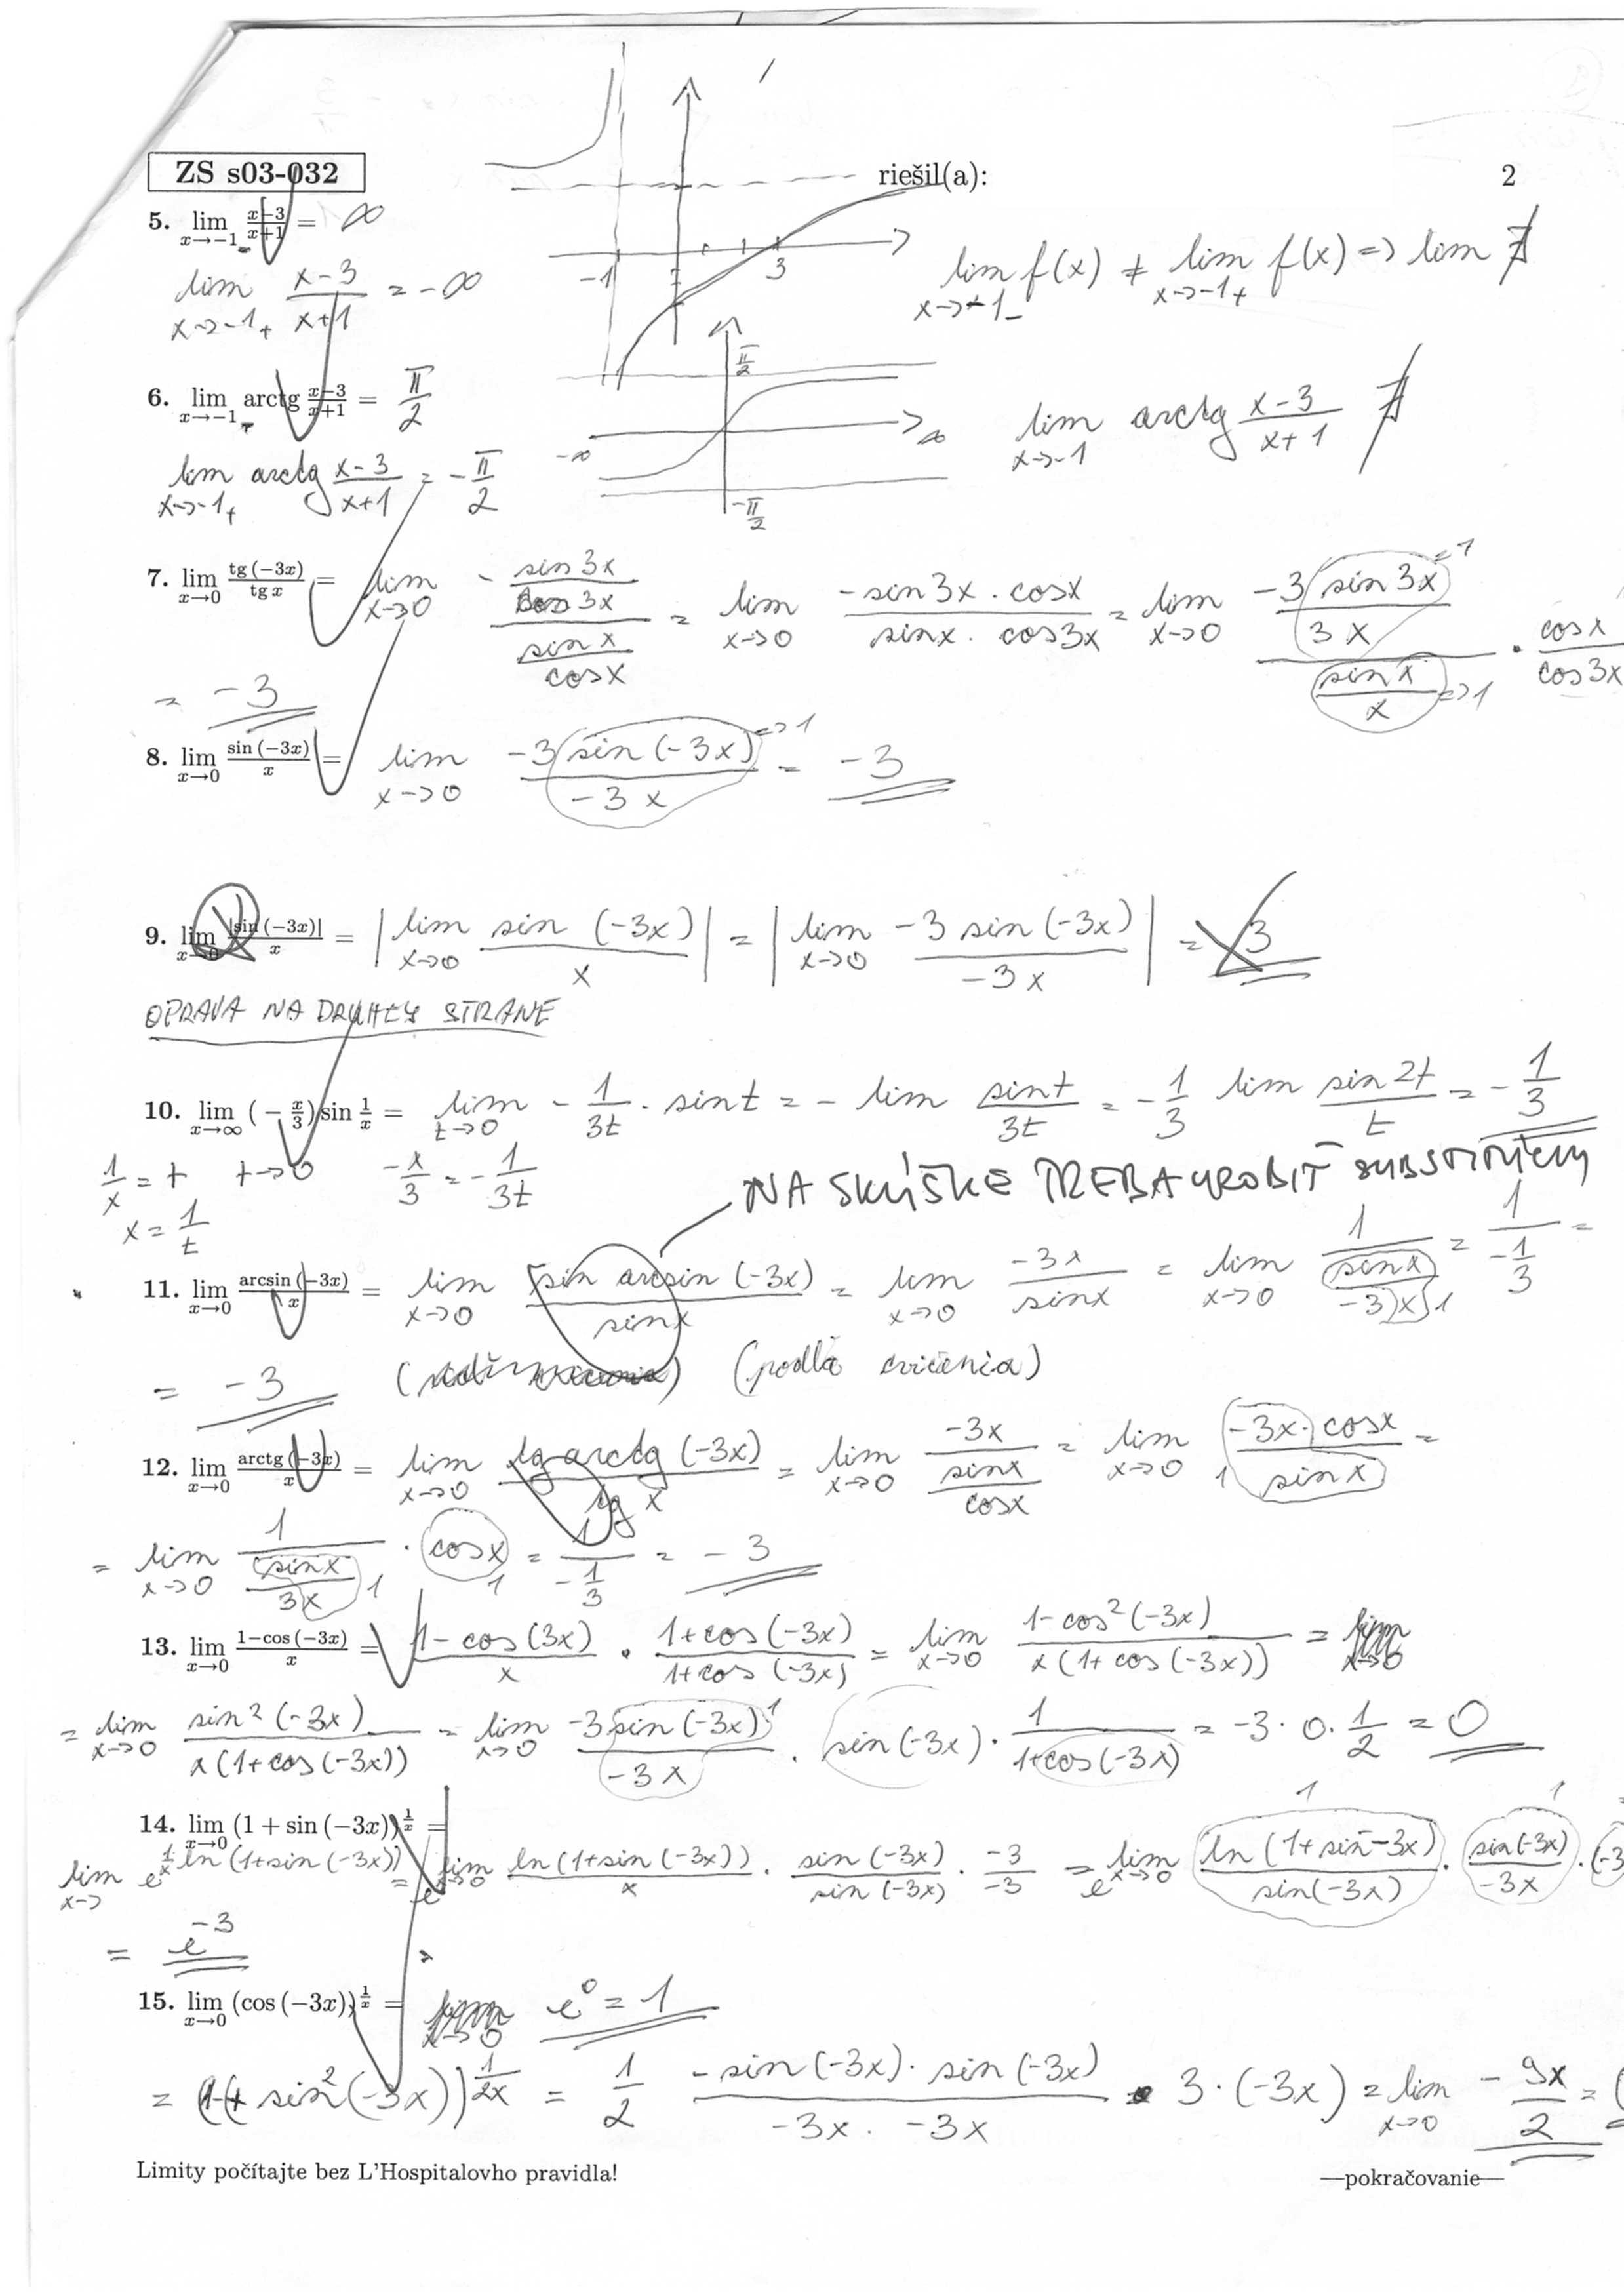 ZS s03-032 riešil(a): 2
5. lim x→-1- (x-3)/(x+1) = ∞
lim x→-1+ (x-3)/(x+1) = -∞
-1 3
lim x→-1- f(x) ≠ lim x→-1+ f(x) => lim ∄
6. lim x→-1- arctg (x-3)/(x+1) = π/2
lim x→-1+ arctg (x-3)/(x+1) = -π/2
π/2 -∞ ∞ -π/2
lim x→-1 arctg (x-3)/(x+1) ∄
7. lim x→0 tg(-3x)/tg x = lim x→0 (- sin 3x/cos 3x)/(sin x/cos x) = lim x→0 (-sin 3x · cos x)/(sin x · cos 3x) = lim x→0 (-3 sin 3x/3x)/(sin x/x) · cos x/cos 3x
=>1 =>1
= -3
8. lim x→0 sin(-3x)/x = lim x→0 -3 sin(-3x)/-3x =>1 = -3
9. lim x→0 |sin(-3x)|/x = |lim x→0 sin(-3x)/x| = |lim x→0 -3 sin(-3x)/-3x| = 3
OPRAVA NA DRUHEJ STRANE
10. lim x→∞ (-x/3) sin 1/x = lim t→0 - 1/3t · sin t = - lim sin t/3t = -1/3 lim sin 2t/t = -1/3
1/x = t t→0 -x/3 = -1/3t
x = 1/t
NA SKÚŠKE TREBA UROBIŤ SUBSTITÚCIU
11. lim x→0 arcsin(-3x)/x = lim x→0 sin arcsin(-3x)/sin x = lim x→0 -3x/sin x = lim x→0 1/(sin x/-3x) 1 = 1/(-1/3) =
= -3 (podľa cvičenia)
12. lim x→0 arctg(-3x)/x = lim x→0 tg arctg(-3x)/tg x = lim x→0 -3x/(sin x/cos x) = lim x→0 1 -3x · cos x/sin x =
= lim x→0 1/(sin x/3x) 1 · cos x 1 = 1/(-1/3) = -3
13. lim x→0 (1-cos(-3x))/x = (1-cos(3x))/x · (1+cos(-3x))/(1+cos(-3x)) = lim x→0 (1-cos²(-3x))/(x(1+cos(-3x))) =
= lim x→0 sin²(-3x)/(x(1+cos(-3x))) = lim x→0 -3 sin(-3x)/-3x 1 · sin(-3x) · 1/(1+cos(-3x)) = -3 · 0 · 1/2 = 0
14. lim x→0 (1 + sin(-3x))^(1/x) =
lim x→ e^(1/x ln(1+sin(-3x))) = e^(lim x→0 ln(1+sin(-3x))/x · sin(-3x)/sin(-3x) · -3/-3) = e^(lim x→0 ln(1+sin-3x)/sin(-3x) · sin(-3x)/-3x · (-3
1 1
= e^-3
15. lim x→0 (cos(-3x))^(1/x) = e^0 = 1
= (1- sin²(-3x))^(1/2x) = 1/2 (-sin(-3x) · sin(-3x))/(-3x · -3x) · 3 · (-3x) = lim x→0 - 9x/2 =
Limity počítajte bez L'Hospitalovho pravidla!
—pokračovanie—